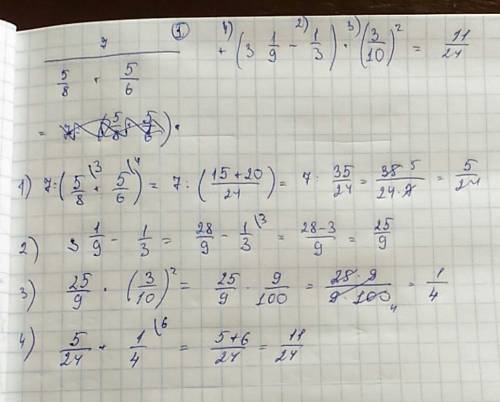 7 / (5/8 + 5/6) + (3 1/9 - 1/3) · (3/10)² = 11/24
=
1) 7:(5/8 + 5/6) = 7 : (15+20 / 24) = 7 : 35/24 = 35 · 5 / 24 · 7 = 5/24
2) 3 1/9 - 1/3 = 28/9 - 1/3 = 28-3 / 9 = 25/9
3) 25/9 · (3/10)² = 25/9 · 9/100 = 25 · 9 / 9 · 100 = 1/4
4) 5/24 + 1/4 = 5+6 / 24 = 11/24